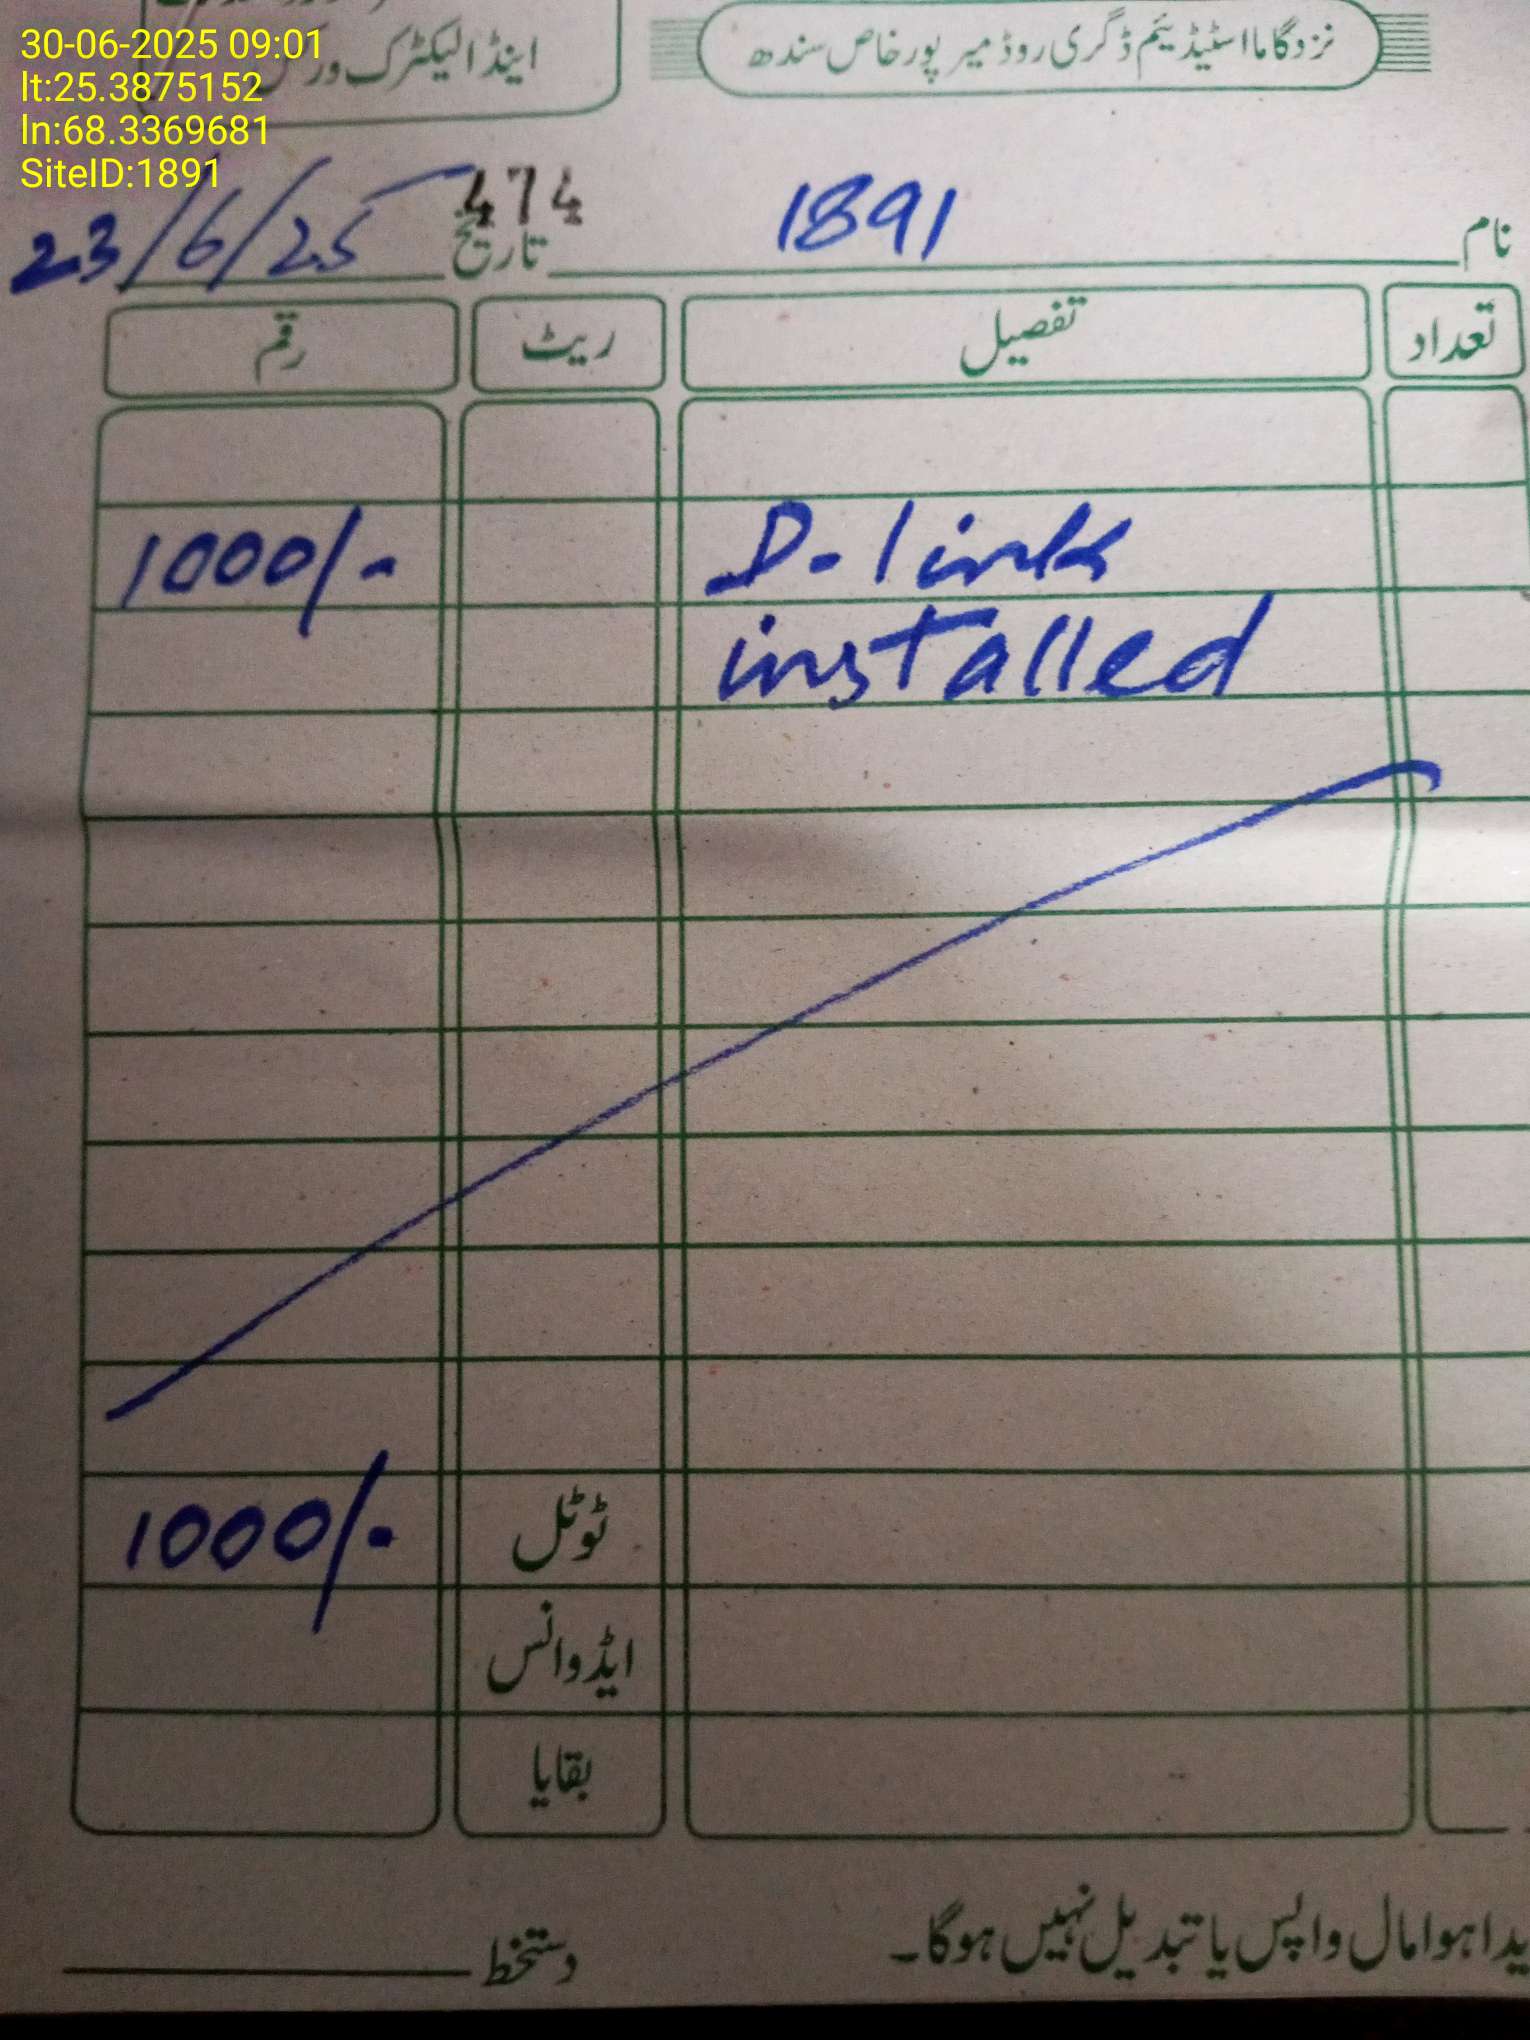 30-06-2025 09:01
lt:25.3875152
ln:68.3369681
SiteID:1891
اینڈ الیکٹرک
نزد گاما اسٹیڈیئم ڈگری روڈ میرپورخاص سندھ
474
نام 1891 تاریخ 23/6/25
تعداد تفصیل ریٹ رقم
D-link 1000/-
installed
ٹوٹل 1000/-
ایڈوانس
بقایا
ہوا مال واپس یا تبدیل نہیں ہوگا۔
دستخط